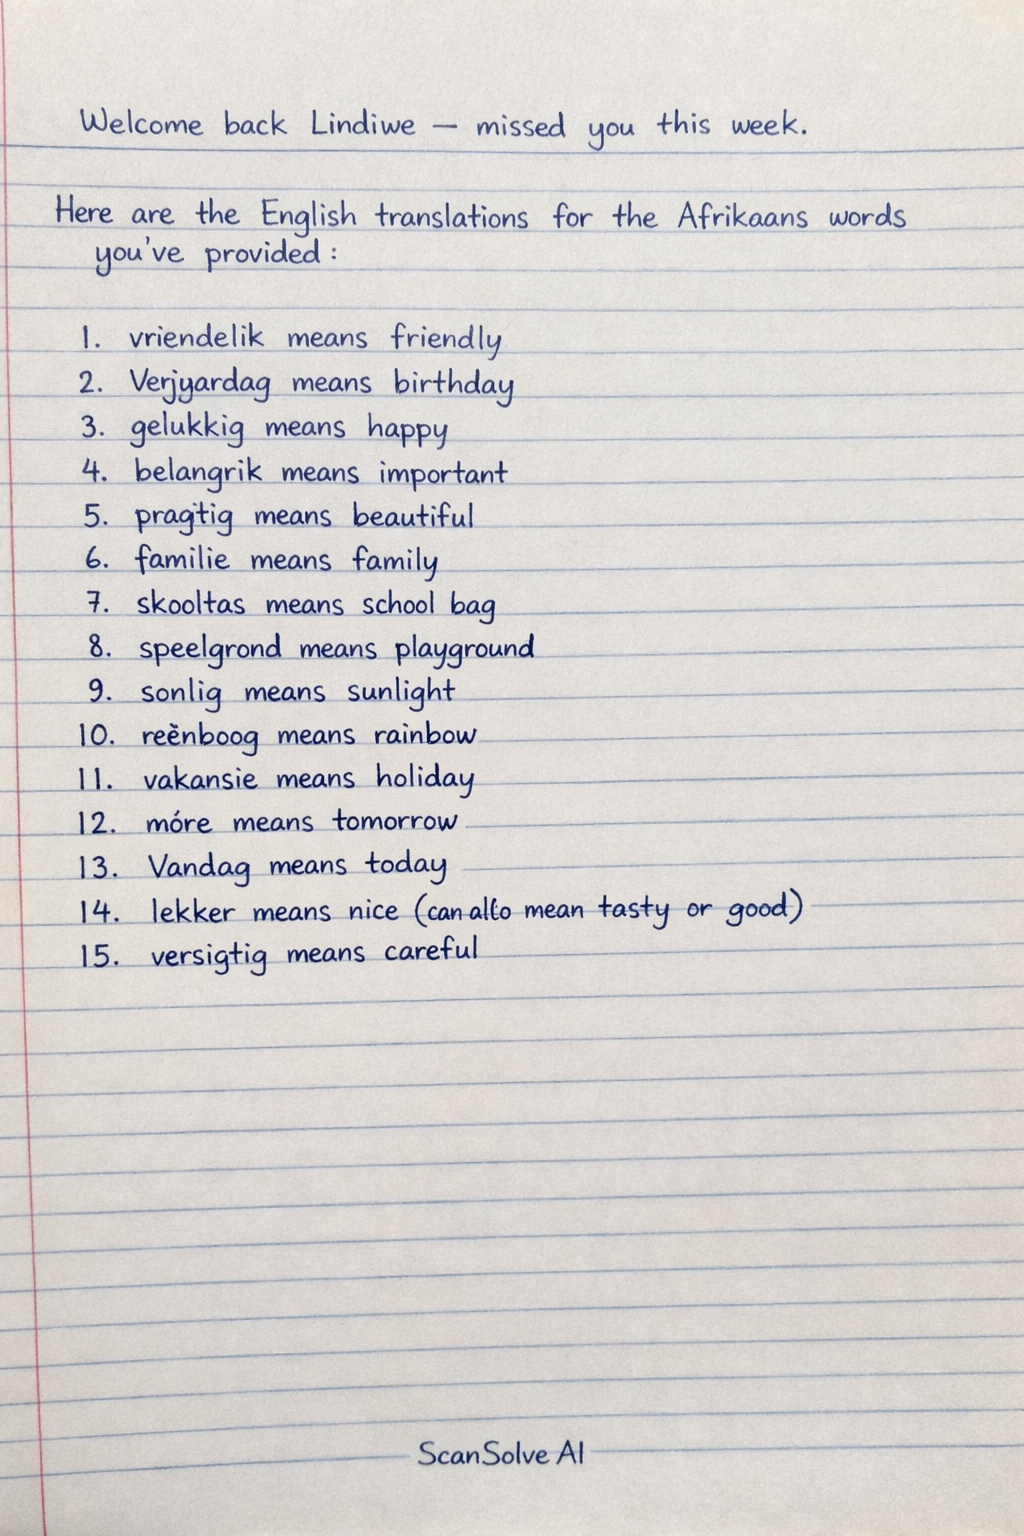 Welcome back Lindiwe — missed you this week.
Here are the English translations for the Afrikaans words
you've provided:
1. vriendelik means friendly
2. Verjyardag means birthday
3. gelukkig means happy
4. belangrik means important
5. pragtig means beautiful
6. familie means family
7. skooltas means school bag
8. speelgrond means playground
9. sonlig means sunlight
10. reënboog means rainbow
11. vakansie means holiday
12. móre means tomorrow
13. Vandag means today
14. lekker means nice (can mean tasty or good)
15. versigtig means careful
ScanSolve AI